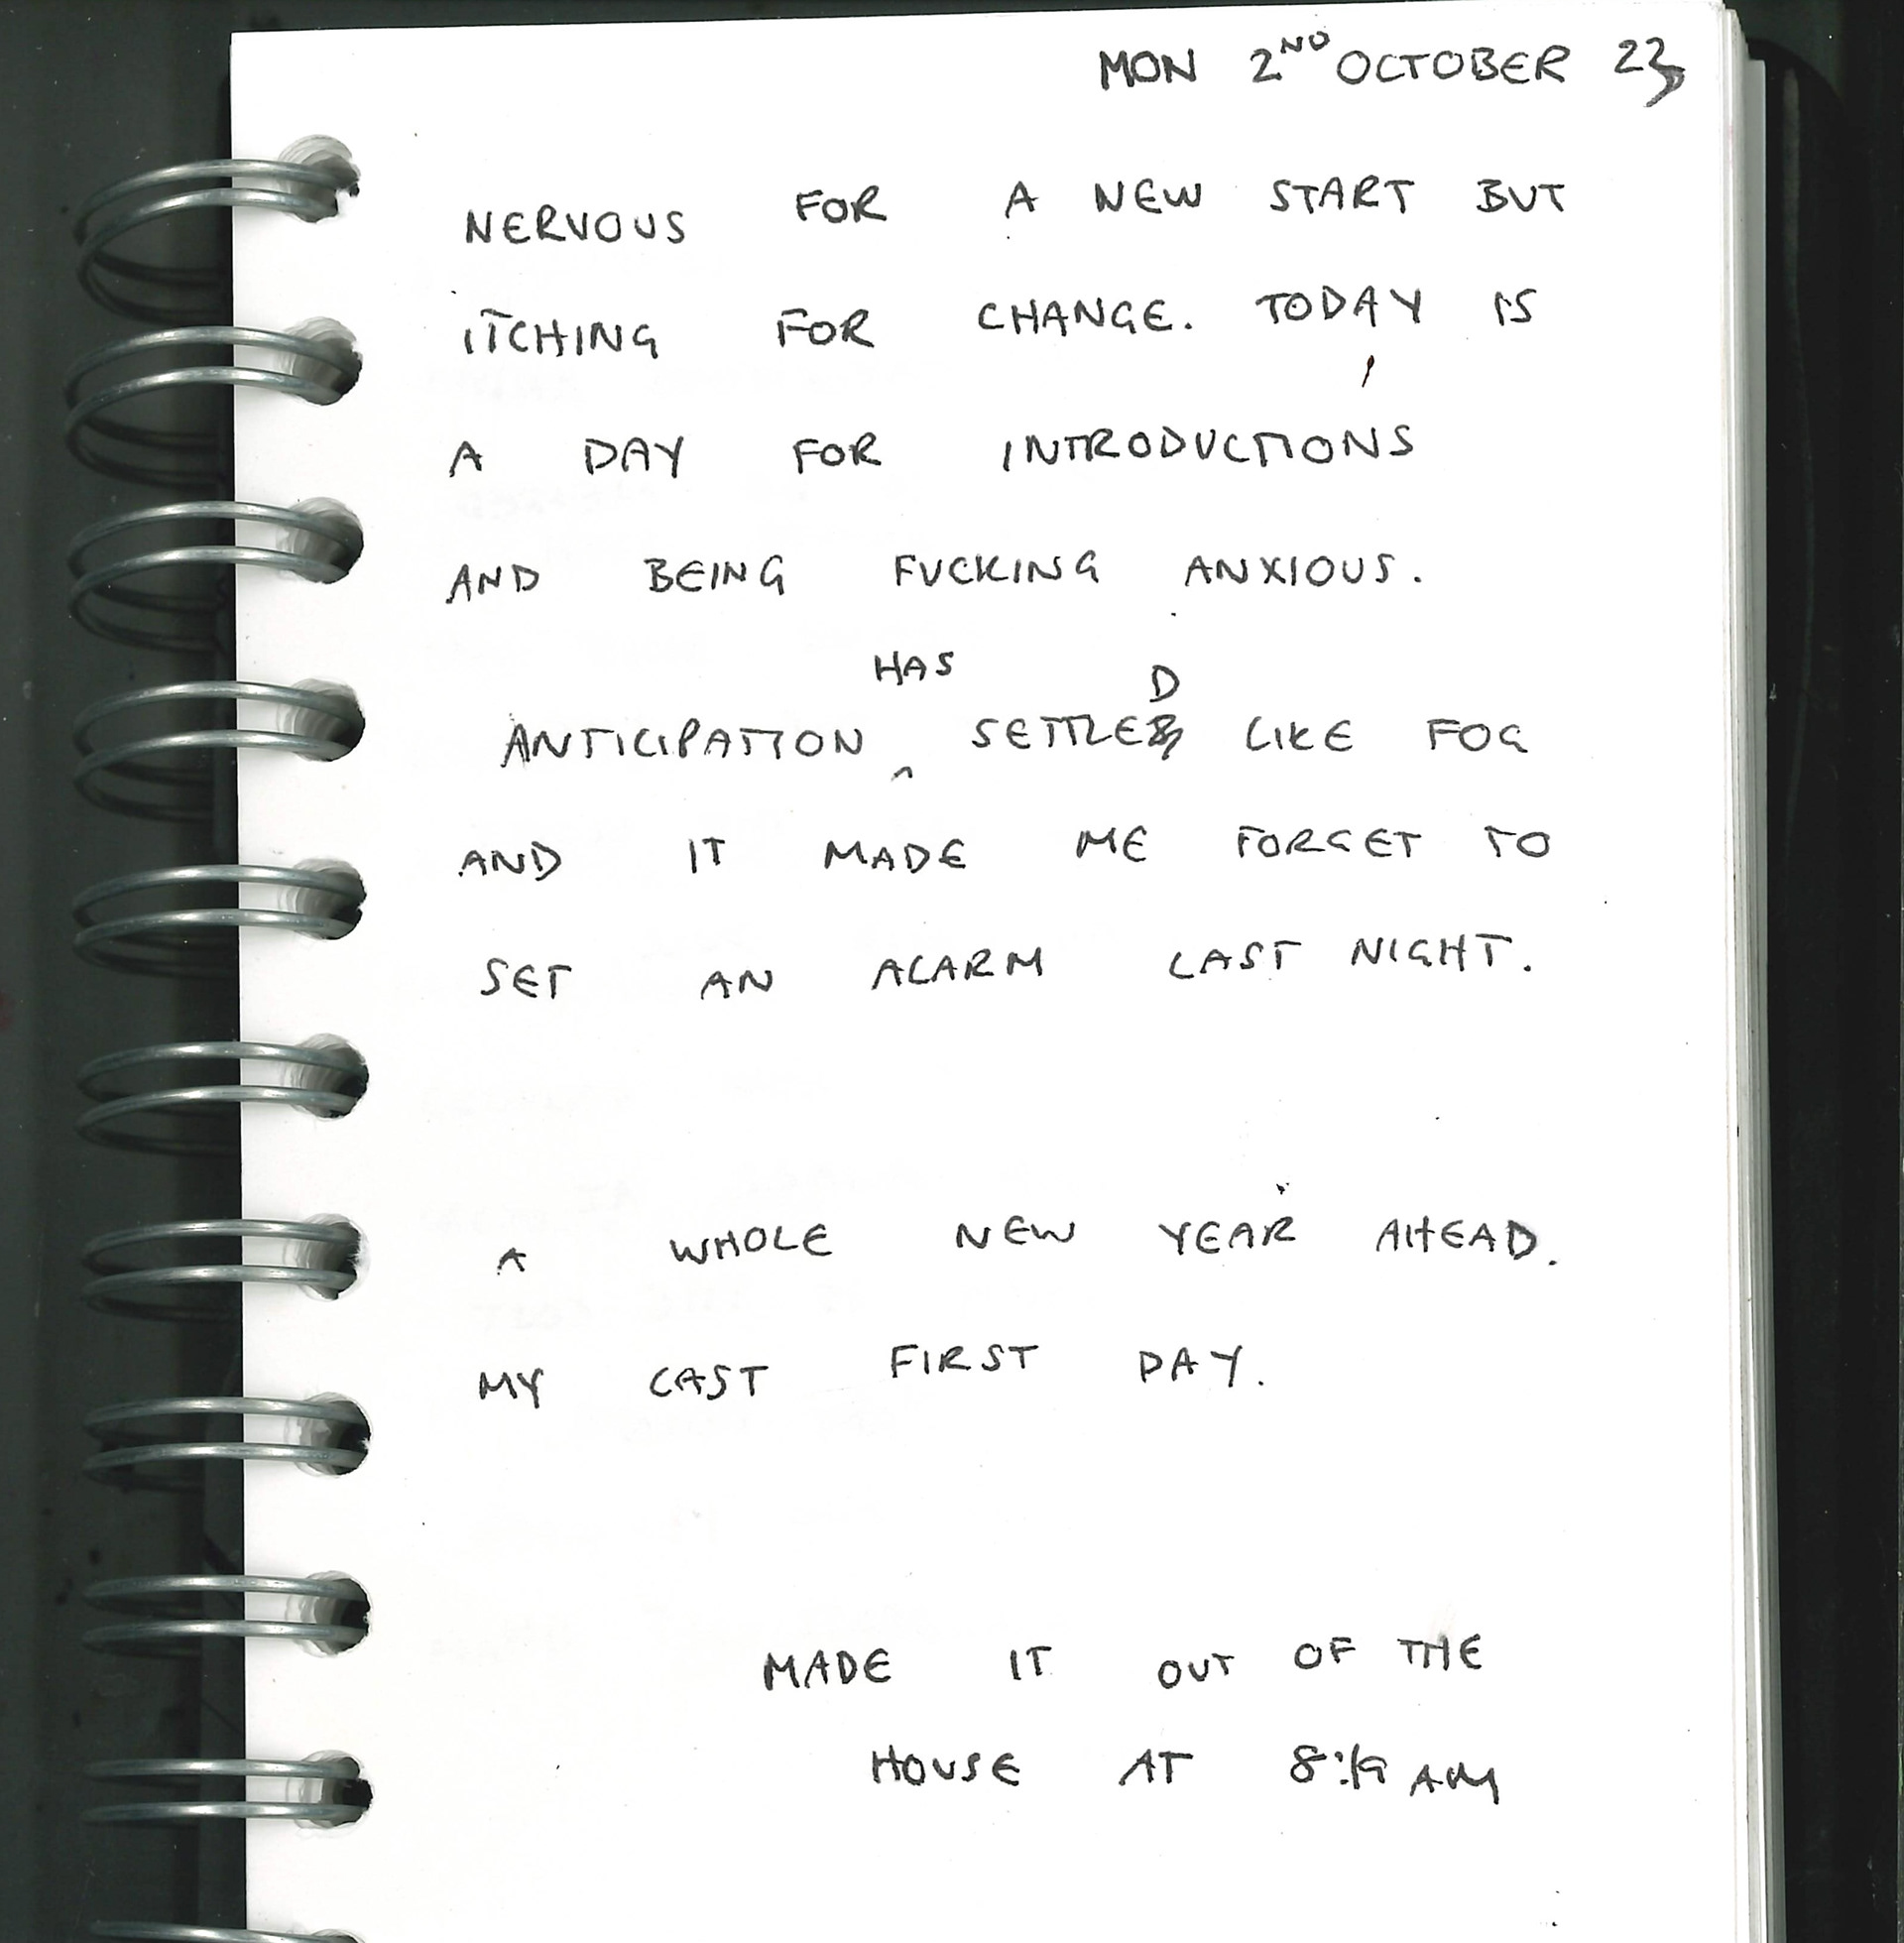 MON 2ND OCTOBER 23
NERVOUS FOR A NEW START BUT
ITCHING FOR CHANGE. TODAY IS
A DAY FOR INTRODUCTIONS
AND BEING FUCKING ANXIOUS.
ANTICIPATION HAS SETTLED LIKE FOG
AND IT MADE ME FORGET TO
SET AN ALARM LAST NIGHT.
A WHOLE NEW YEAR AHEAD.
MY LAST FIRST DAY.
MADE IT OUT OF THE
HOUSE AT 8:19 AM